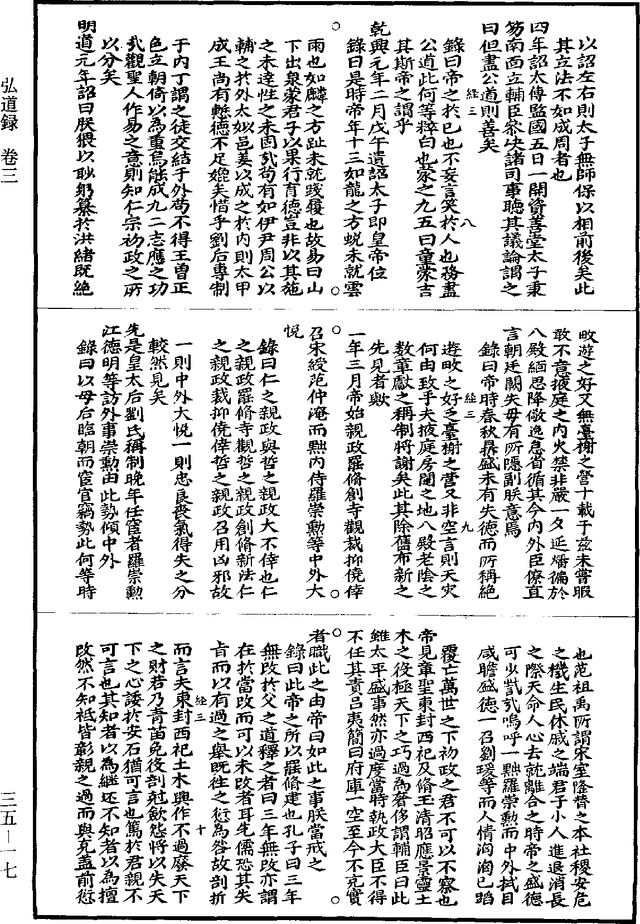 弘道録　卷三
三五—一七
以詔左右則太子無師保以相前後矣此
其立法不如成周者也
四年詔太傅監國五日一開資善堂太子秉
笏南面立輔臣參決諸司事聽其議論謂之
曰但盡公道則善矣
錄曰帝之於己也不妄言笑於人也務盡
公道此何等粹白也蒙之九五曰童蒙吉
其斯帝之謂乎
乾興元年二月戊午遺詔太子即皇帝位
錄曰是時帝年十三如龍之方蛻未就雲
雨也如麟之方趾未就踐履也故易曰山
下出泉蒙君子以果行育德豈非以其施
之未達性之未固哉苟有如伊尹周公以
輔之於外太姒邑姜以成之於内則太甲
成王尚有慙德不足媿矣惜乎劉后專制
于内丁謂之徒交結于外苟不得王曾正
色立朝倚以為重焉能成九二志應之功
哉觀聖人作易之意則知仁宗初政之所
以分矣
明道元年詔曰朕猥以眇躬纂於洪緒既絶
經三
八
畋遊之好又無臺榭之營十載于兹未嘗暇
敢不意掖庭之内火禁非嚴一夕延燔徧於
八殿緬思降儆逸怠省循其令内外臣僚直
言朝廷闕失毋有所隱副朕意焉
錄曰帝時春秋鼎盛未有失德而所稱絶
遊畋之好乏臺榭之營又非空言則天灾
何由致乎夫掖庭房闥之地八殿老陰之
數章獻之稱制將謝矣此其除舊布新之
先見者歟
一年三月帝始親政罷脩創寺觀裁抑僥倖
召宋綬范仲淹而黜内侍羅崇勲等中外大
悦
錄曰仁之親政與哲之親政大不侔也仁
之親政罷脩寺觀哲之親政創脩新法仁
之親政裁抑僥倖哲之親政召用凶邪故
一則中外大悦一則忠良喪氣得失之分
較然見矣
先是皇太后劉氏稱制晚年任宦者羅崇勲
江德明等訪外事崇勲由此勢傾中外
錄曰以母后臨朝而宦官竊勢此何等時
經三
九
也范祖禹所謂宋室隆替之本社稷安危
之機生民休戚之端君子小人進退消長
之際天命人心去就離合之時帝之盛德
可少哉哉嗚呼一黜羅崇勲而中外拭目
咸瞻盛德一召劉瑗等而人情洶洶已蹈
覆亡萬世之下初政之君不可以不察也
帝見章聖東封西祀及脩玉清昭應景靈土
木之役極天下之巧過為奢侈謂輔臣曰此
雖太平盛事然亦過度當時執政大臣不得
不任其責呂夷簡曰府庫一空至今不充實
者職此之由帝曰如此之事朕當戒之
錄曰此帝之所以罷脩建也孔子曰三年
無改於父之道釋之者曰三年無改亦謂
在於當改而可以未改者耳先儒恐其失
肯而以有過之舉既往之衍為咎故剖折
而言夫東封西祀土木興作不過廢天下
之財若乃青苗免役剖剋歛怨將以失天
下之心諉於安石猶可言也篤於君親不
可言也其知者以為繼述不知者以為擅
改然不知祗皆彰親之過而與克蓋前愆
經三
十